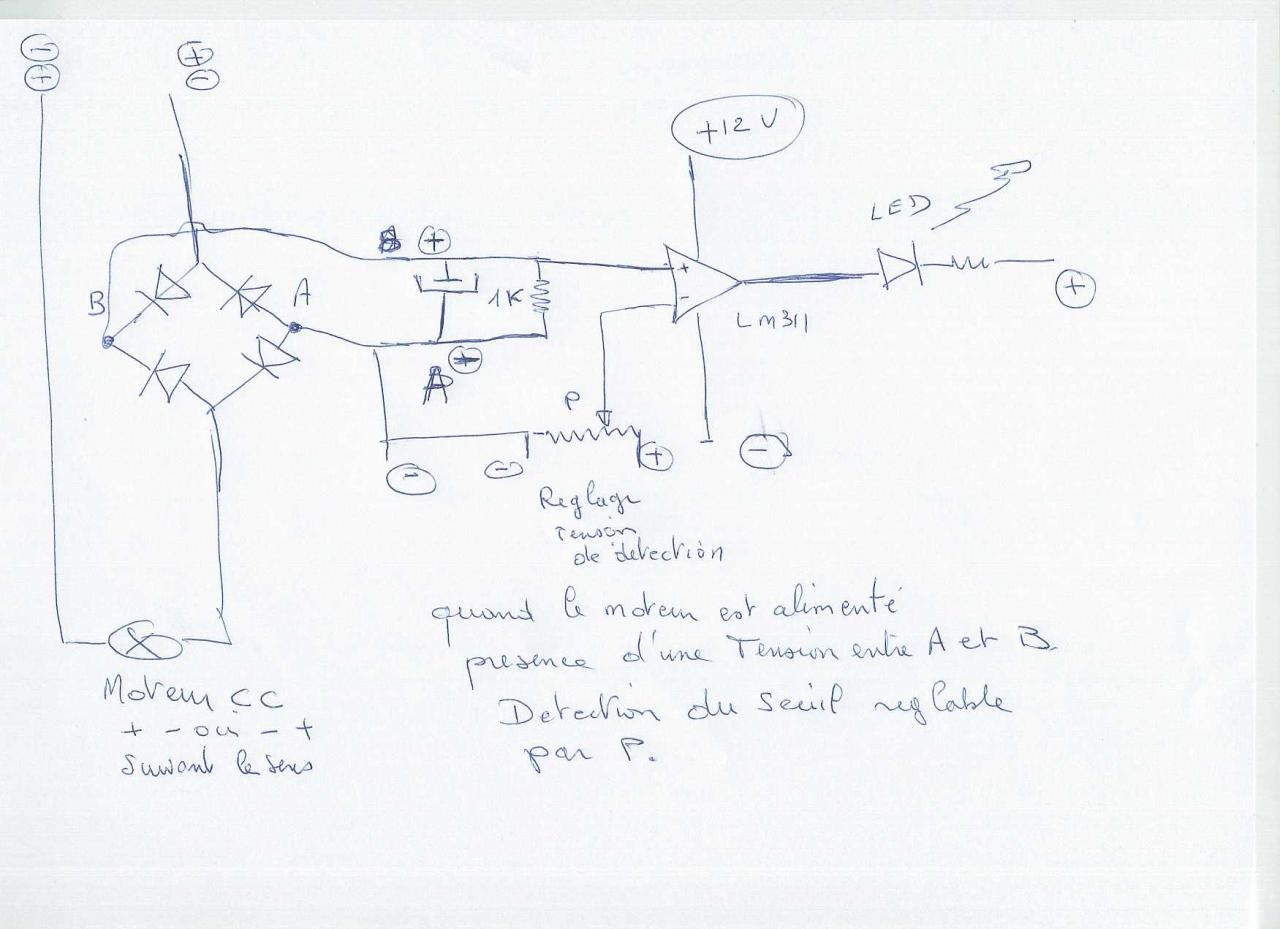 − +
+ −
+12 V
LED
B +
B
A
1K
+
−
LM311
+
A +
P
− − + −
Reglage
Tension
de detection
quand le moteur est alimenté
presence d'une Tension entre A et B.
Moteur CC
Detection du seuil reglable
+ - ou - +
par P.
Suivant le sens